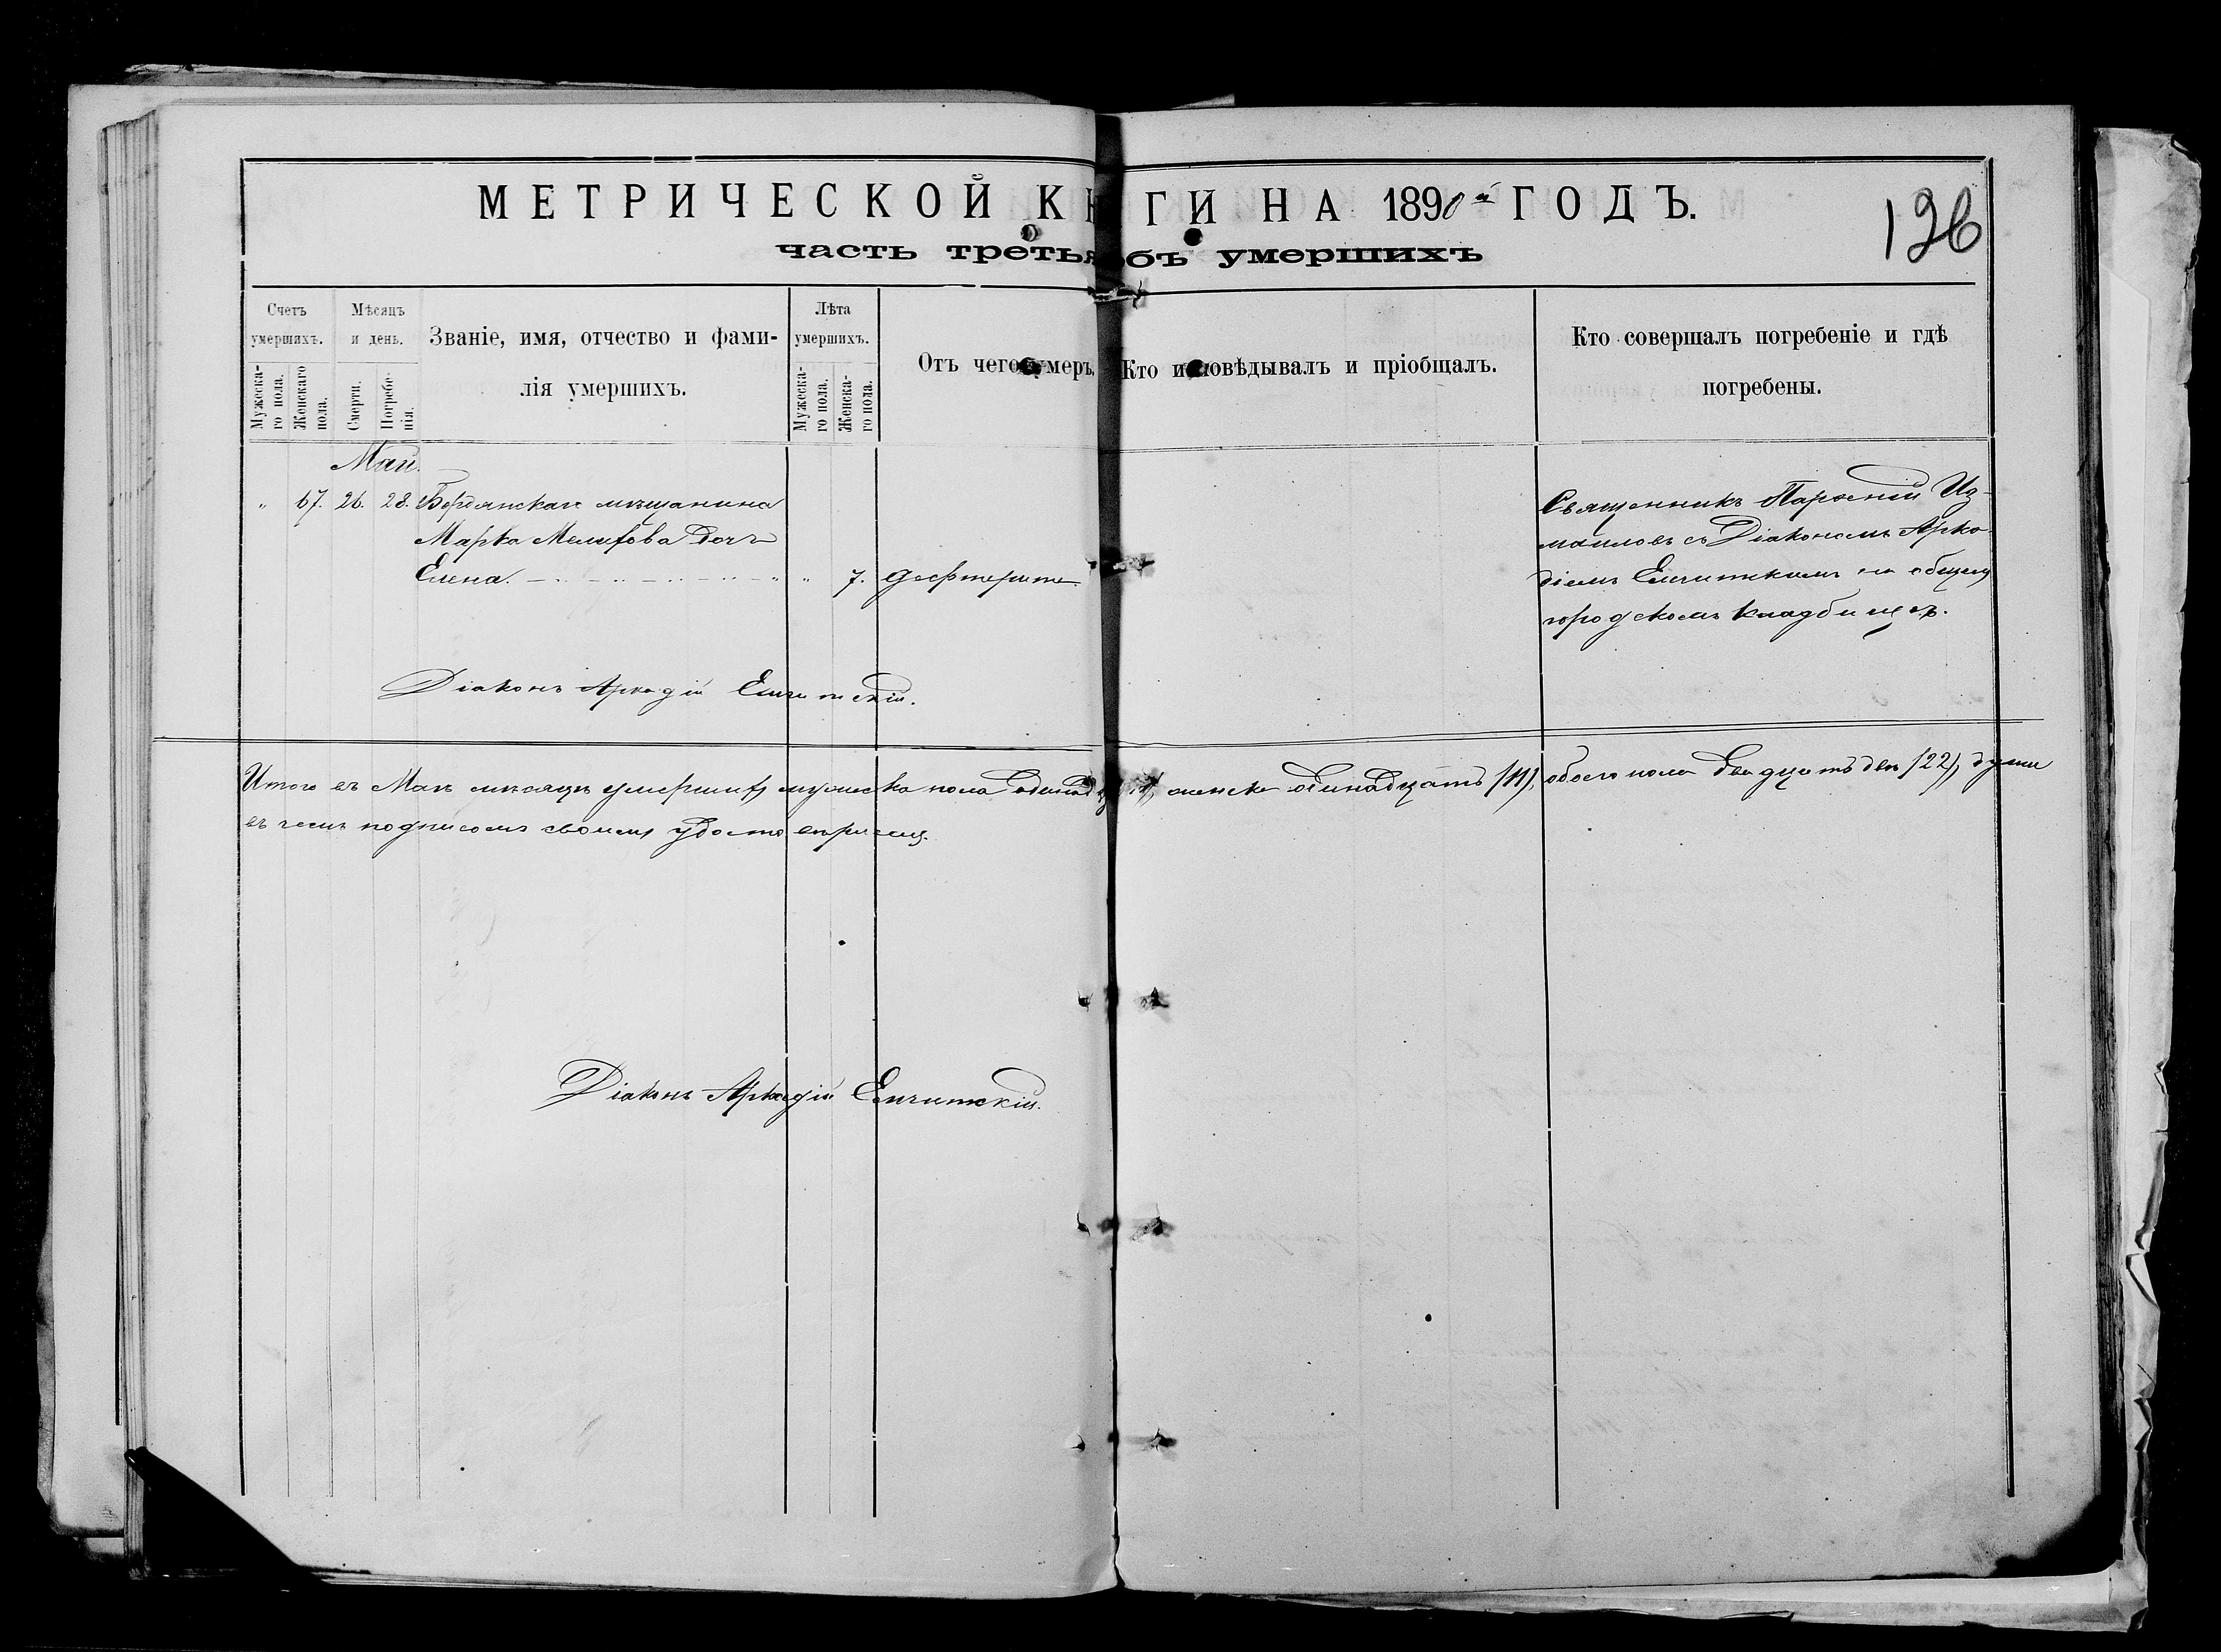 МЕТРИЧЕСКОЙ К ГИ НА 1890й ГОДЪ.
126
часть третья бъ умершихъ
Счетъ умершихъ.
Мужеска-го пола.
Женскаго пола.
Мѣсяцъ и день.
Смерти.
Погребе-нія.
Званіе, имя, отчество и фами-
лія умершихъ.
Лѣта умершихъ.
Мужеска-го пола.
Женска-го пола.
Отъ чего умеръ.
Кто исповѣдывалъ и пріобщалъ.
Кто совершалъ погребеніе и гдѣ
погребены.
Май.
" 67. 26. 28. Бердянскаго мѣщанина
Марка дочь
Елена. " " 7. Дефтерита
Священникъ Парѳеній Из-
маиловъ съ Діакономъ Арка-
діемъ на общемъ
городскомъ кладбищѣ.
Діаконъ Аркадій
Итого въ Маѣ мѣсяцѣ умершихъ мужеска пола женска одинадцать (11), обоего пола двадцать двѣ (22), души
въ чемъ подписомъ своимъ удостовѣряемъ.
Діаконъ Аркадій